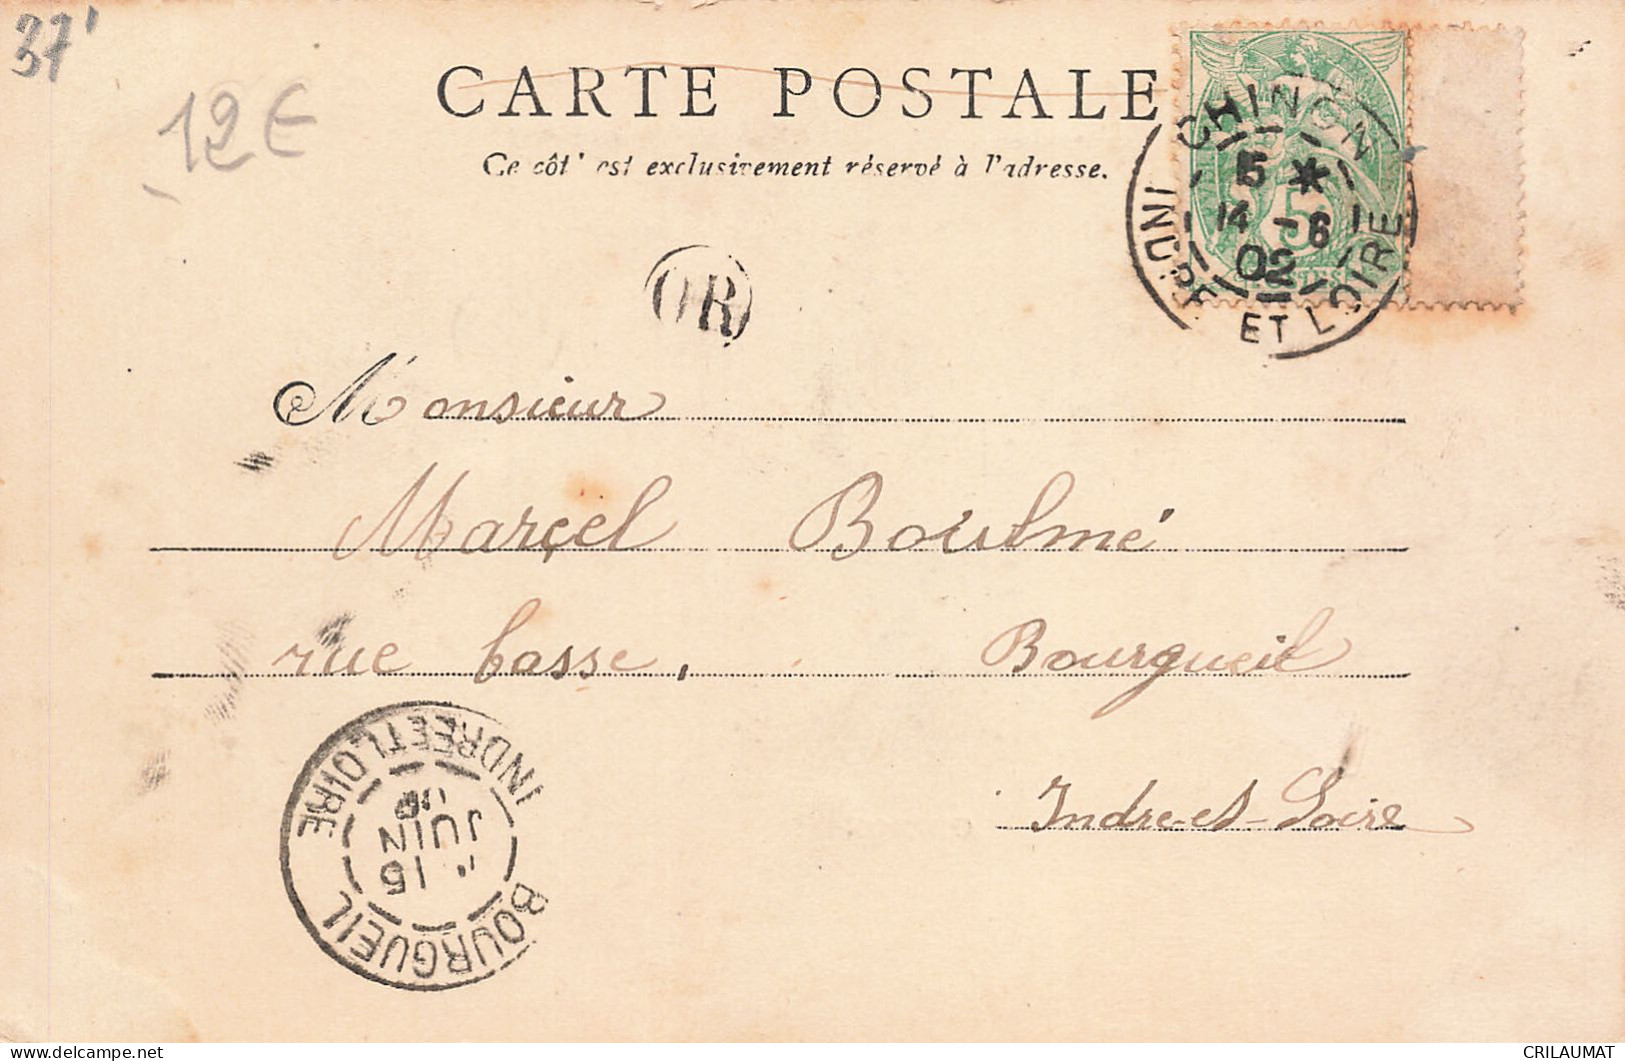 37'
12€
CARTE POSTALE
Ce côt' est exclusivement réservé à l'adresse.
CHINON
5 *
14 - 6
02
INDRE ET LOIRE
5
OR
Monsieur
Marçel Boulmé
rue basse, Bourgueil
Indre-et-Loire
BOURGUEIL
15
JUIN
INDRE ET LOIRE
CRILAUMAT